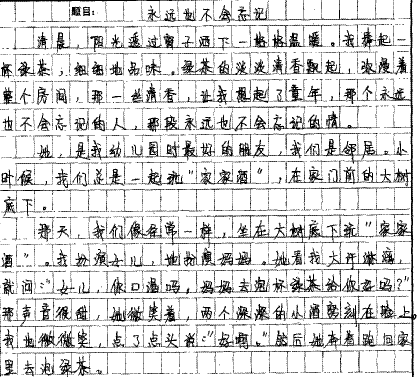 题目: 永远也不会忘记
清晨，阳光透过窗子洒下一格格温暖。我捧起一
杯绿茶，细细地品味。绿茶的淡淡清香飘起，弥漫着
整个房间，那一丝清香，让我想起了童年，那个永远
也不会忘记的人，那段永远也不会忘记的情。
她，是我幼儿园时最好的朋友，我们是邻居。小
时候，我们总是一起玩“家家酒”，在家门前的大树
底下。
那天，我们像往常一样，坐在大树底下玩“家家
酒”。我扮演女儿，她扮演妈妈。她看我大汗淋漓，
就问：“女儿，你口渴吗，妈妈去泡杯绿茶给你好吗？”
那声音很甜，她微笑着，两个深深的小酒窝刻在脸上。
我也微微笑，点了点头说：“好啊。”然后她奔着跑回家
里去泡绿茶。